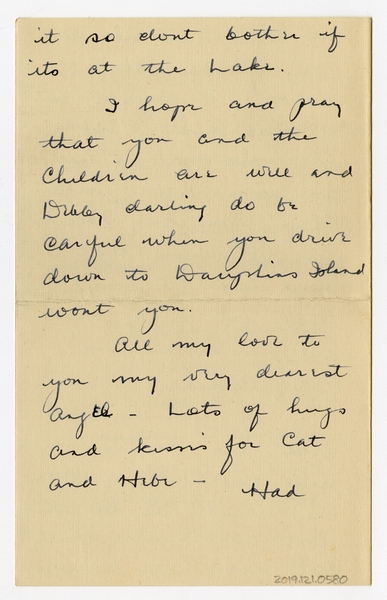 it so dont bother if
its at the Lake.
I hope and pray
that you and the
Children are well and
Debby darling do be
careful when you drive
down to Dauphins Island
wont you.
All my love to
you my very dearest
Angel - Lots of hugs
and kisses for Cat
and Hebe -
Had
2019.121.0580